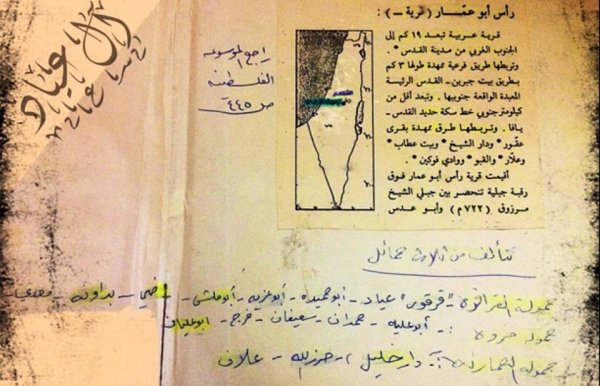 رأس أبو عمّار (قرية –) :
قرية عربية تبعد ١٩ كم إلى
الجنوب الغربي من مدينة القدس .
وتربطها طريق فرعية ممهدة طولها ٣ كم
بطريق بيت جبرين - القدس الرئيسة
المعبدة الواقعة جنوبيها . وتبعد أقل من
كيلومتر جنوبي خط سكة حديد القدس -
يافا . وتربطها طرق ممهدة بقرى
عقّور ودار الشيخ وبيت عطاب
وعلّار والقبو ووادي فوكين .
أقيمت قرية رأس أبو عمار فوق
رقبة جبلية تنحصر بين جبلي الشيخ
مرزوق (٧٢٢ م) وأبو عدس
راجع الموسوعة
الفلسطينية
ص ٤٤٥
آل عياد
تتألف من ثلاث حمائل
حمولة "قرقور" عياد - أبو حميده - أبو عزيه - - بداونه -
حمولة : - أبو عليه - حمدان - سعيفان - فرج - أبو عليان
حمولة : دار خليل - حرزالله - علان